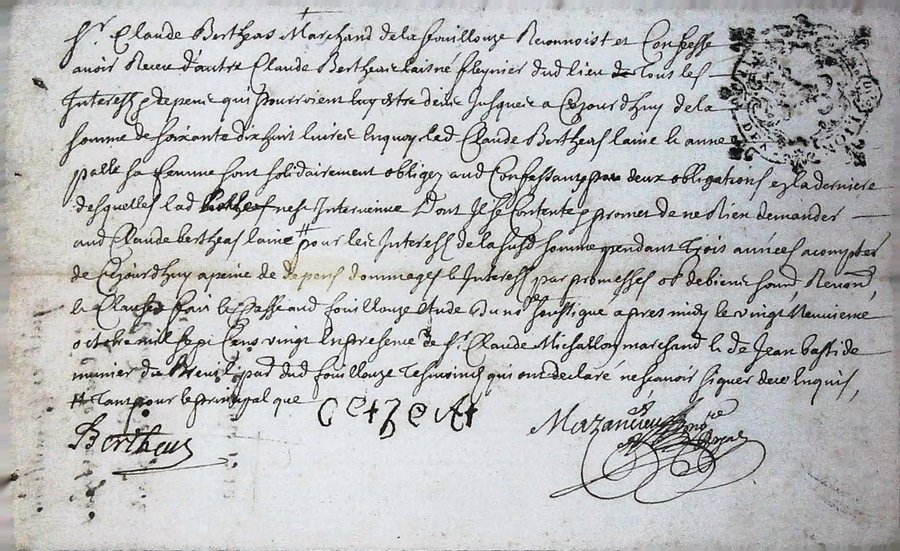 Sr. Claude Bertheas Marchand de la fouillouze Reconnoist et Confesse
avoir Receu d'autre Claude Bertheas laisné dud lieu de Tous les
Interests & depens qui pourroient luy estre deus Jusques a Cejourdhuy de la
somme de soixante dix huit livres Enquoy led Claude Bertheas laine & anne
palle sa femme sont solidairement obligez aud Confessant par deux obligations ez la derniere
desquelles lad nest Intervenue Dont Il se Contente & promet de ne Rien demander
aud Claude bertheas laine pour les Interests de la susd somme pendant Trois années a compter
de Cejourdhuy a peine de depens dommages & Interests par promesses ob de biens soud, Renond,
& Clauses fait & Passé aud fouillouze Etude du nore soussigné apres midy le vingt Neuvieme
octobre mil sept Cens vingt En presence de sr. Claude Michallon marchand & de Jean baptiste
munier du Breuil pad dud fouillouze Tesmoins qui ont declaré ne scavoir signer de ce Enquis,
# Tant pour le principal que
Bertheas